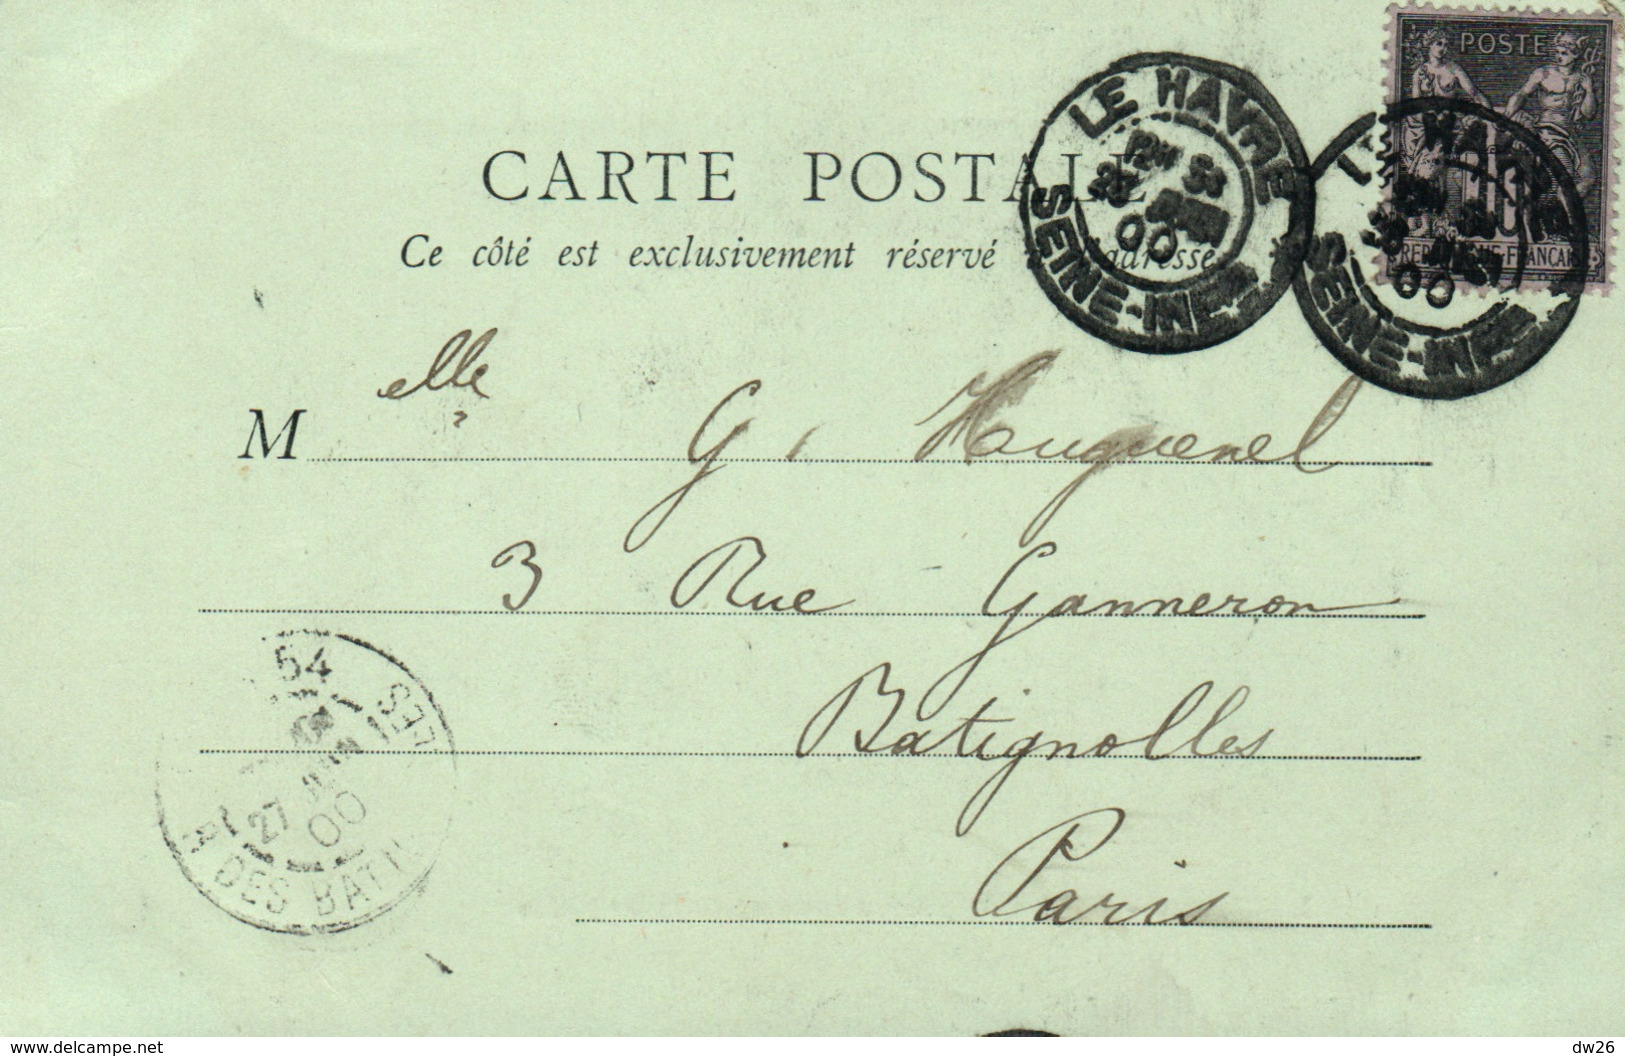 POSTE
10
CARTE POSTALE
Ce côté est exclusivement réservé à l'adresse
LE HAVRE
00
SEINE-INFRE
LE HAVRE
00
SEINE-INFRE
M elle G. Huguenel
3 Rue Ganneron
Batignolles
Paris
54
27
00
R. DES BATIGNOLLES
delcampe.net
dw26